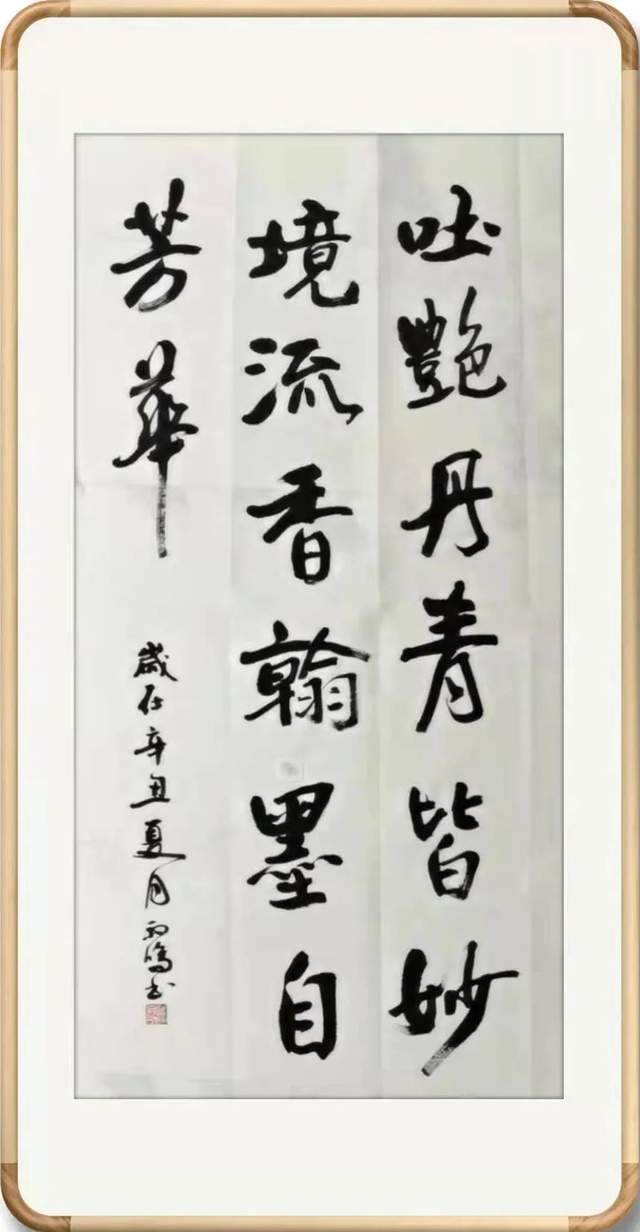 吐艷丹青皆妙
境流香翰墨自
芳華
歲在辛丑夏月